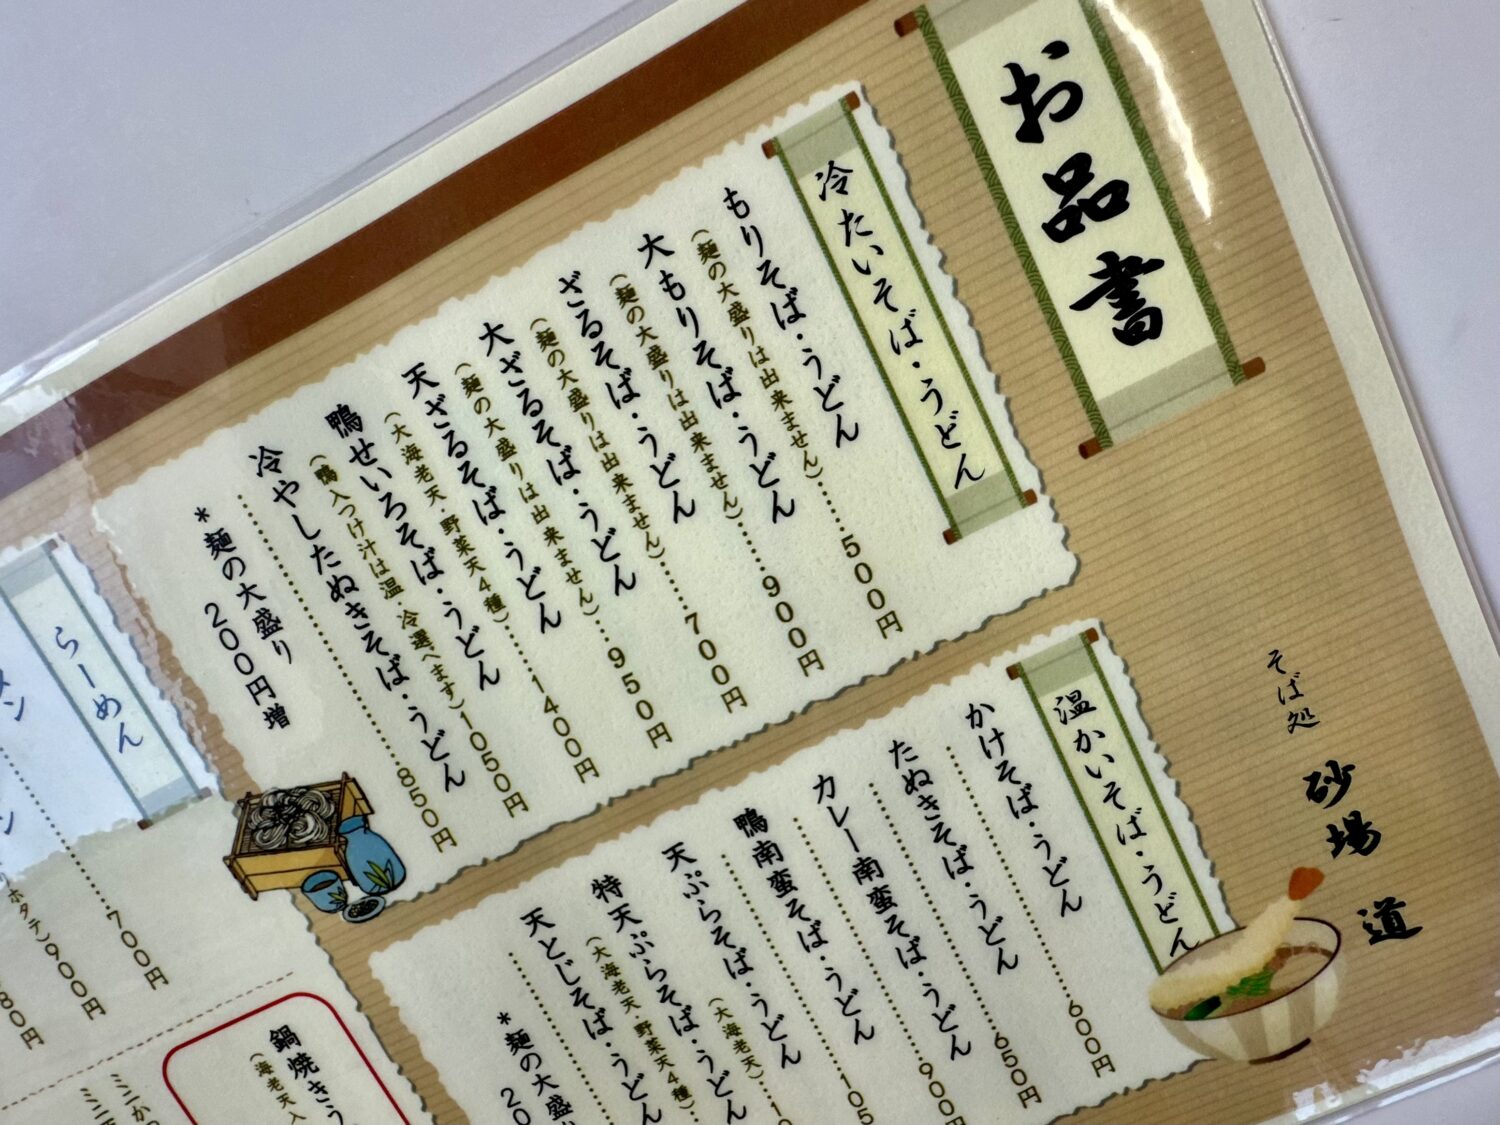 お品書
そば処
砂場
道
冷たいそば・うどん
もりそば・うどん
(麺の大盛りは出来ません)……500円
大もりそば・うどん
(麺の大盛りは出来ません)……900円
ざるそば・うどん
(麺の大盛りは出来ません)……700円
大ざるそば・うどん
(麺の大盛りは出来ません)……950円
天ざるそば・うどん
(大海老天・野菜天4種)……1400円
鴨せいろそば・うどん
(鴨入つけ汁は温・冷選べます)1050円
冷やしたぬきそば・うどん
……850円
*麺の大盛り 200円増
温かいそば・うどん
かけそば・うどん
……600円
たぬきそば・うどん
……650円
カレー南蛮そば・うどん
……900円
鴨南蛮そば・うどん
……105
天ぷらそば・うどん
(大海老天)……
特天ぷらそば・うどん
(大海老天・野菜天4種)……
天とじそば・うどん
*麺の大盛
らーめん
……700円
ホタテ)900円
80円
鍋焼きう
(海老天入
ミニか
ミニ